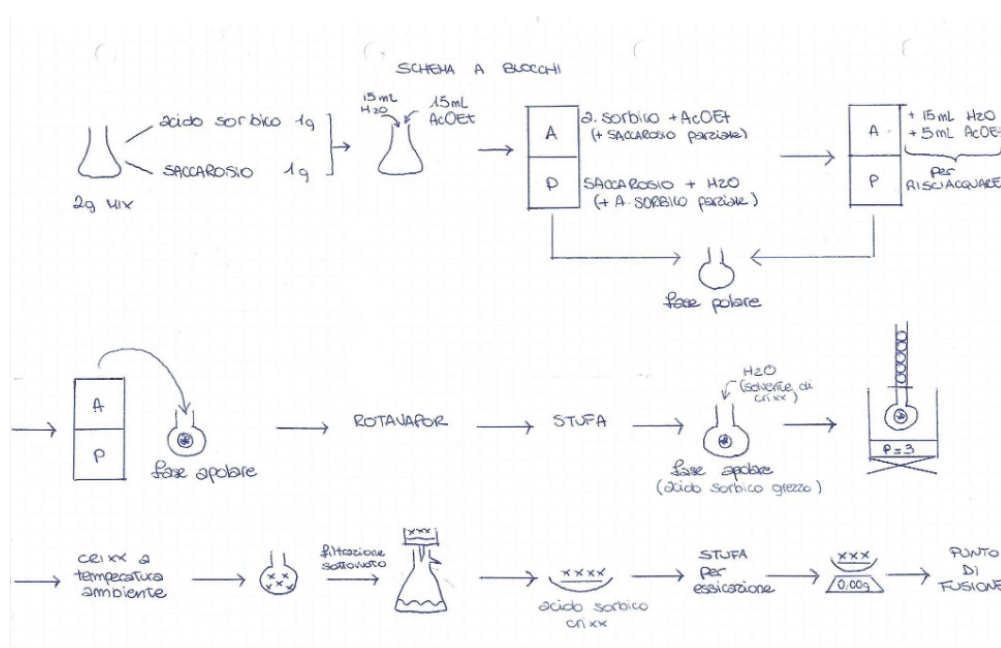 SCHEMA A BLOCCHI
acido sorbico 1g
SACCAROSIO 1g
2g MIX
15mL
H2O
15mL
AcOEt
A
P
a. sorbico + AcOEt
(+ SACCAROSIO parziale)
SACCAROSIO + H2O
(+ A. SORBICO parziale)
A
P
+ 15 mL H2O
+ 5mL AcOEt
per
RISCIACQUARE
fase polare
A
P
fase apolare
ROTAVAPOR
STUFA
H2O
(solvente di
crixx)
fase apolare
(acido sorbico grezzo)
P=3
CRIXX a
temperatura
ambiente
xx
xx
filtrazione
sottovuoto
xxx
xxxx
acido sorbico
crixx
STUFA
per
essicazione
xxx
0,00g
PUNTO
DI
FUSIONE